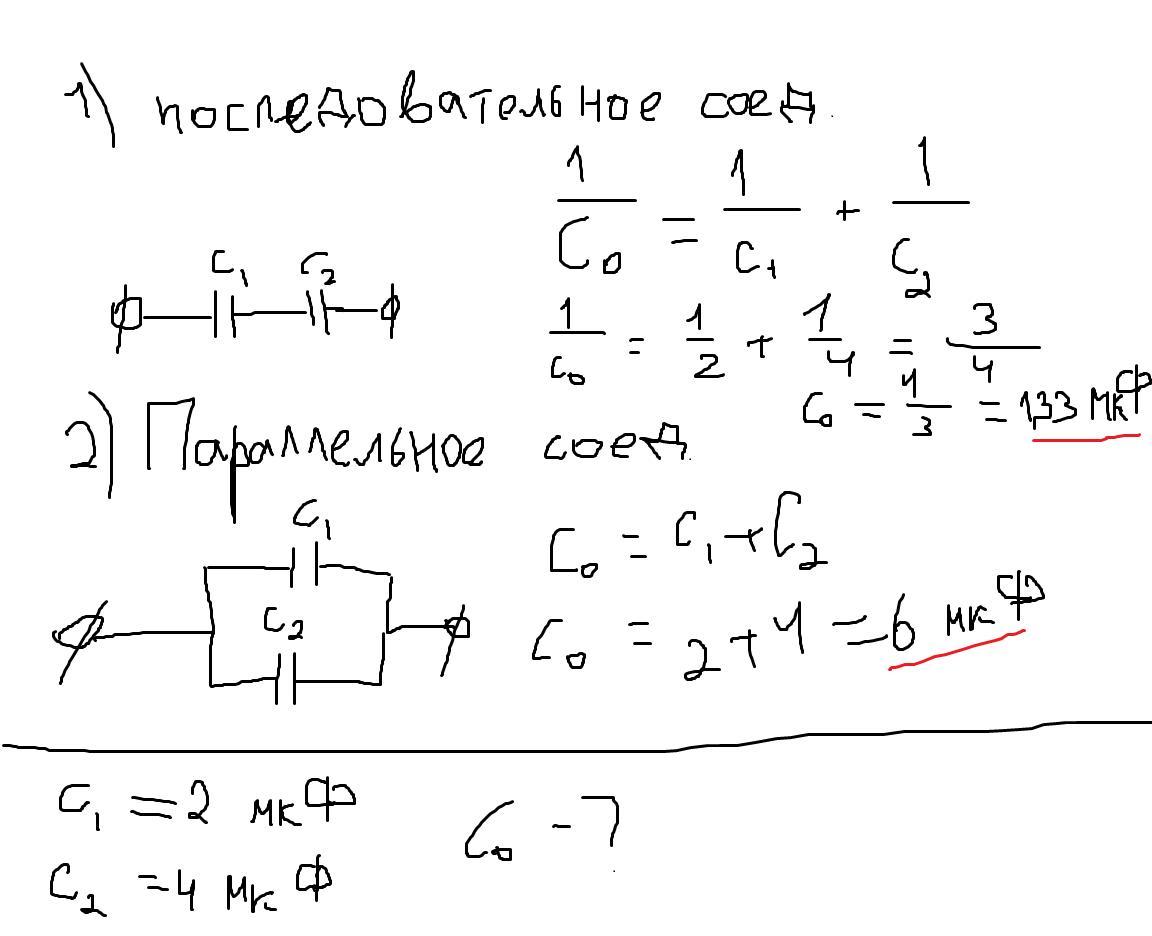 1) последовательное соед.
1/C0 = 1/C1 + 1/C2
C1 C2
1/C0 = 1/2 + 1/4 = 3/4
C0 = 4/3 = 1,33 мкФ
2) Параллельное соед.
C1
C0 = C1 + C2
C2
C0 = 2 + 4 = 6 мкФ
C1 = 2 мкФ
C0 - ?
C2 = 4 мкФ